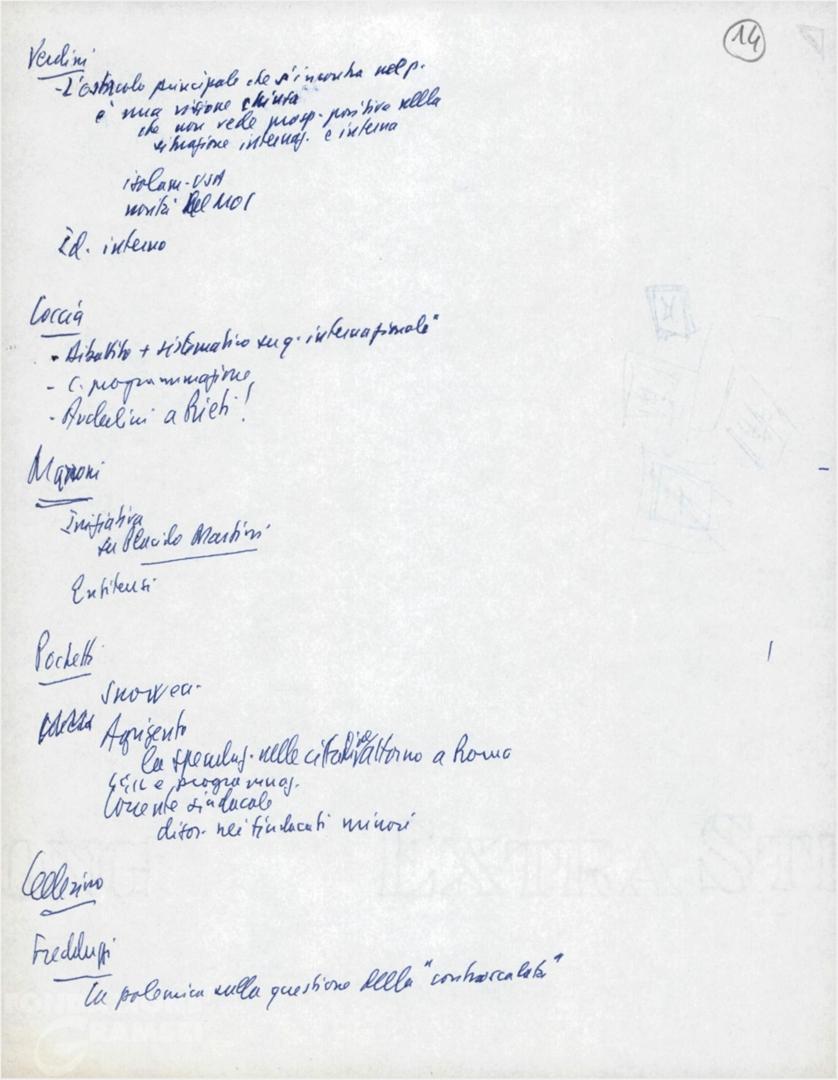 14
Verdini
-L'ostacolo principale che s'incontra nel p.
è una visione chiusa
che non vede prosp. positiva nella
situazione internaz. e interna
isolam. USA
novità del MOI
Ed. interno
Coccia
- Dibattito + sistematico su q. internazionale"
- C. programmazione
- Anderlini a Rieti!
Mammi
Iniziativa
su Placido Martini
Pochetti
Agrigento
la speculaz. nelle cittadine attorno a Roma
e programmaz.
Corrente sindacale
disor. nei sindacati minori
Fredduzzi
la polemica sulla questione della "controscalata"